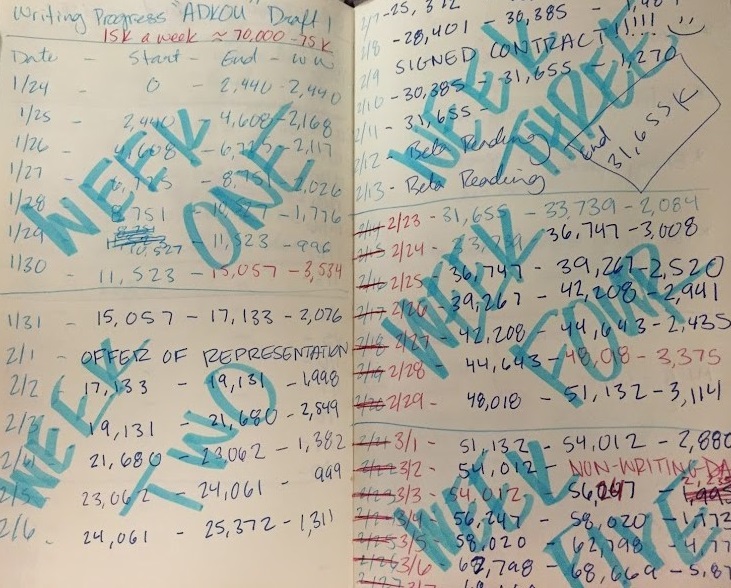 Writing Progress "ADKOU" Draft 1
15K a week ≈ 70,000 - 75K
Date - Start - End - WW
1/24 - 0 - 2,440 - 2,440
1/25 - 2,440 - 4,608 - 2,168
1/26 - 4,608 - 6,725 - 2,117
1/27 - 6,725 - 8,751 - 2,026
1/28 - 8,751 - 10,527 - 1,776
1/29 - 10,527 - 11,523 - 996
1/30 - 11,523 - 15,057 - 3,534
WEEK ONE
1/31 - 15,057 - 17,133 - 2,076
2/1 - OFFER OF REPRESENTATION
2/2 - 17,133 - 19,131 - 1,998
2/3 - 19,131 - 21,680 - 2,549
2/4 - 21,680 - 23,062 - 1,382
2/5 - 23,062 - 24,061 - 999
2/6 - 24,061 - 25,372 - 1,311
WEEK TWO
2/7 - 25,372
2/8 - 28,401 - 30,385
2/9 SIGNED CONTRACT!!!!!
2/10 - 30,385 - 31,655 - 1,270
2/11 - 31,655
2/12 - Beta Reading
2/13 - Beta Reading
End 31,655K
WEEK THREE
2/23 - 31,655 - 33,739 - 2,084
2/24 - 33,739 36,747 - 3,008
2/25 - 36,747 - 39,267 - 2,520
2/26 - 39,267 - 42,208 - 2,941
2/27 - 42,208 - 44,643 - 2,435
2/28 - 44,643 - 48,018 - 3,375
2/29 - 48,018 - 51,132 - 3,114
WEEK FOUR
3/1 - 51,132 - 54,012 - 2,880
3/2 - 54,012 - NON-WRITING DA
3/3 - 54,012 - 56,247 - 2,235
3/4 - 56,247 - 58,020 - 1,772
3/5 - 58,020 - 62,798 - 4,77
3/6 - 62,798 - 68,669 - 5,87
3/7
WEEK FIVE